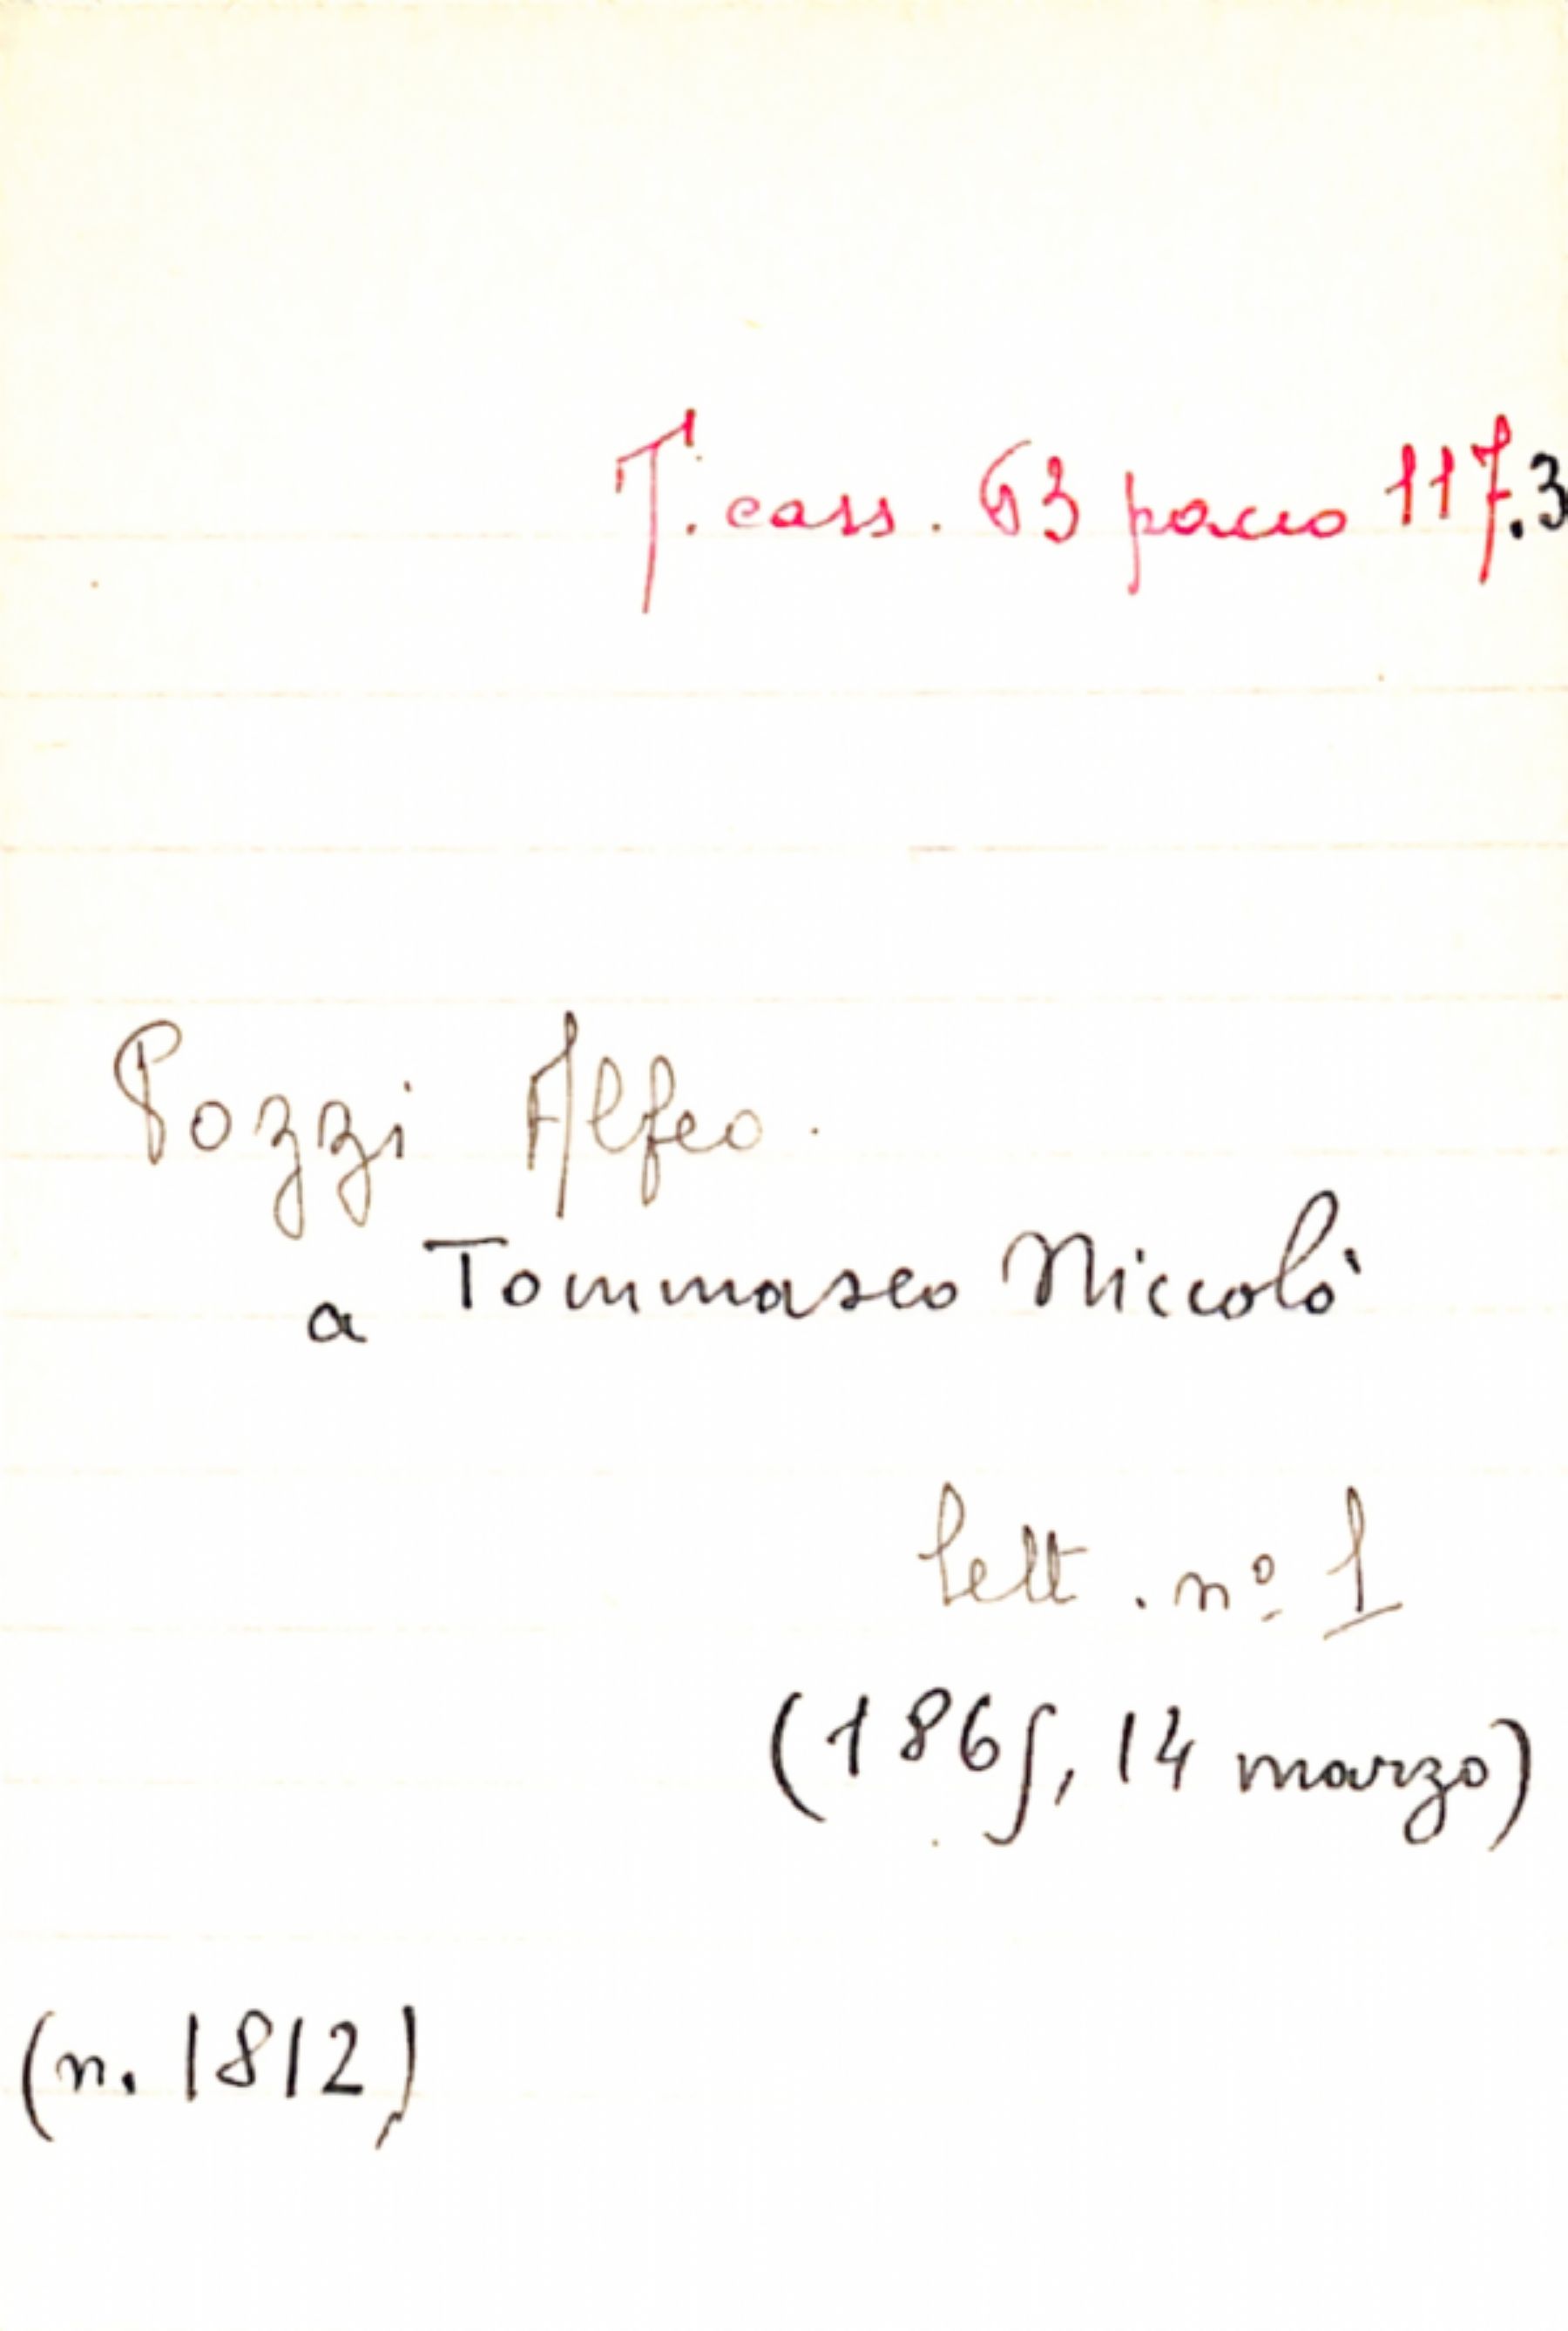 T. cass. 63 pacco 117.3
Pozzi Alfeo.
a Tommaseo Niccolò
lett. nº 1
(1865, 14 marzo)
(n. 1812)